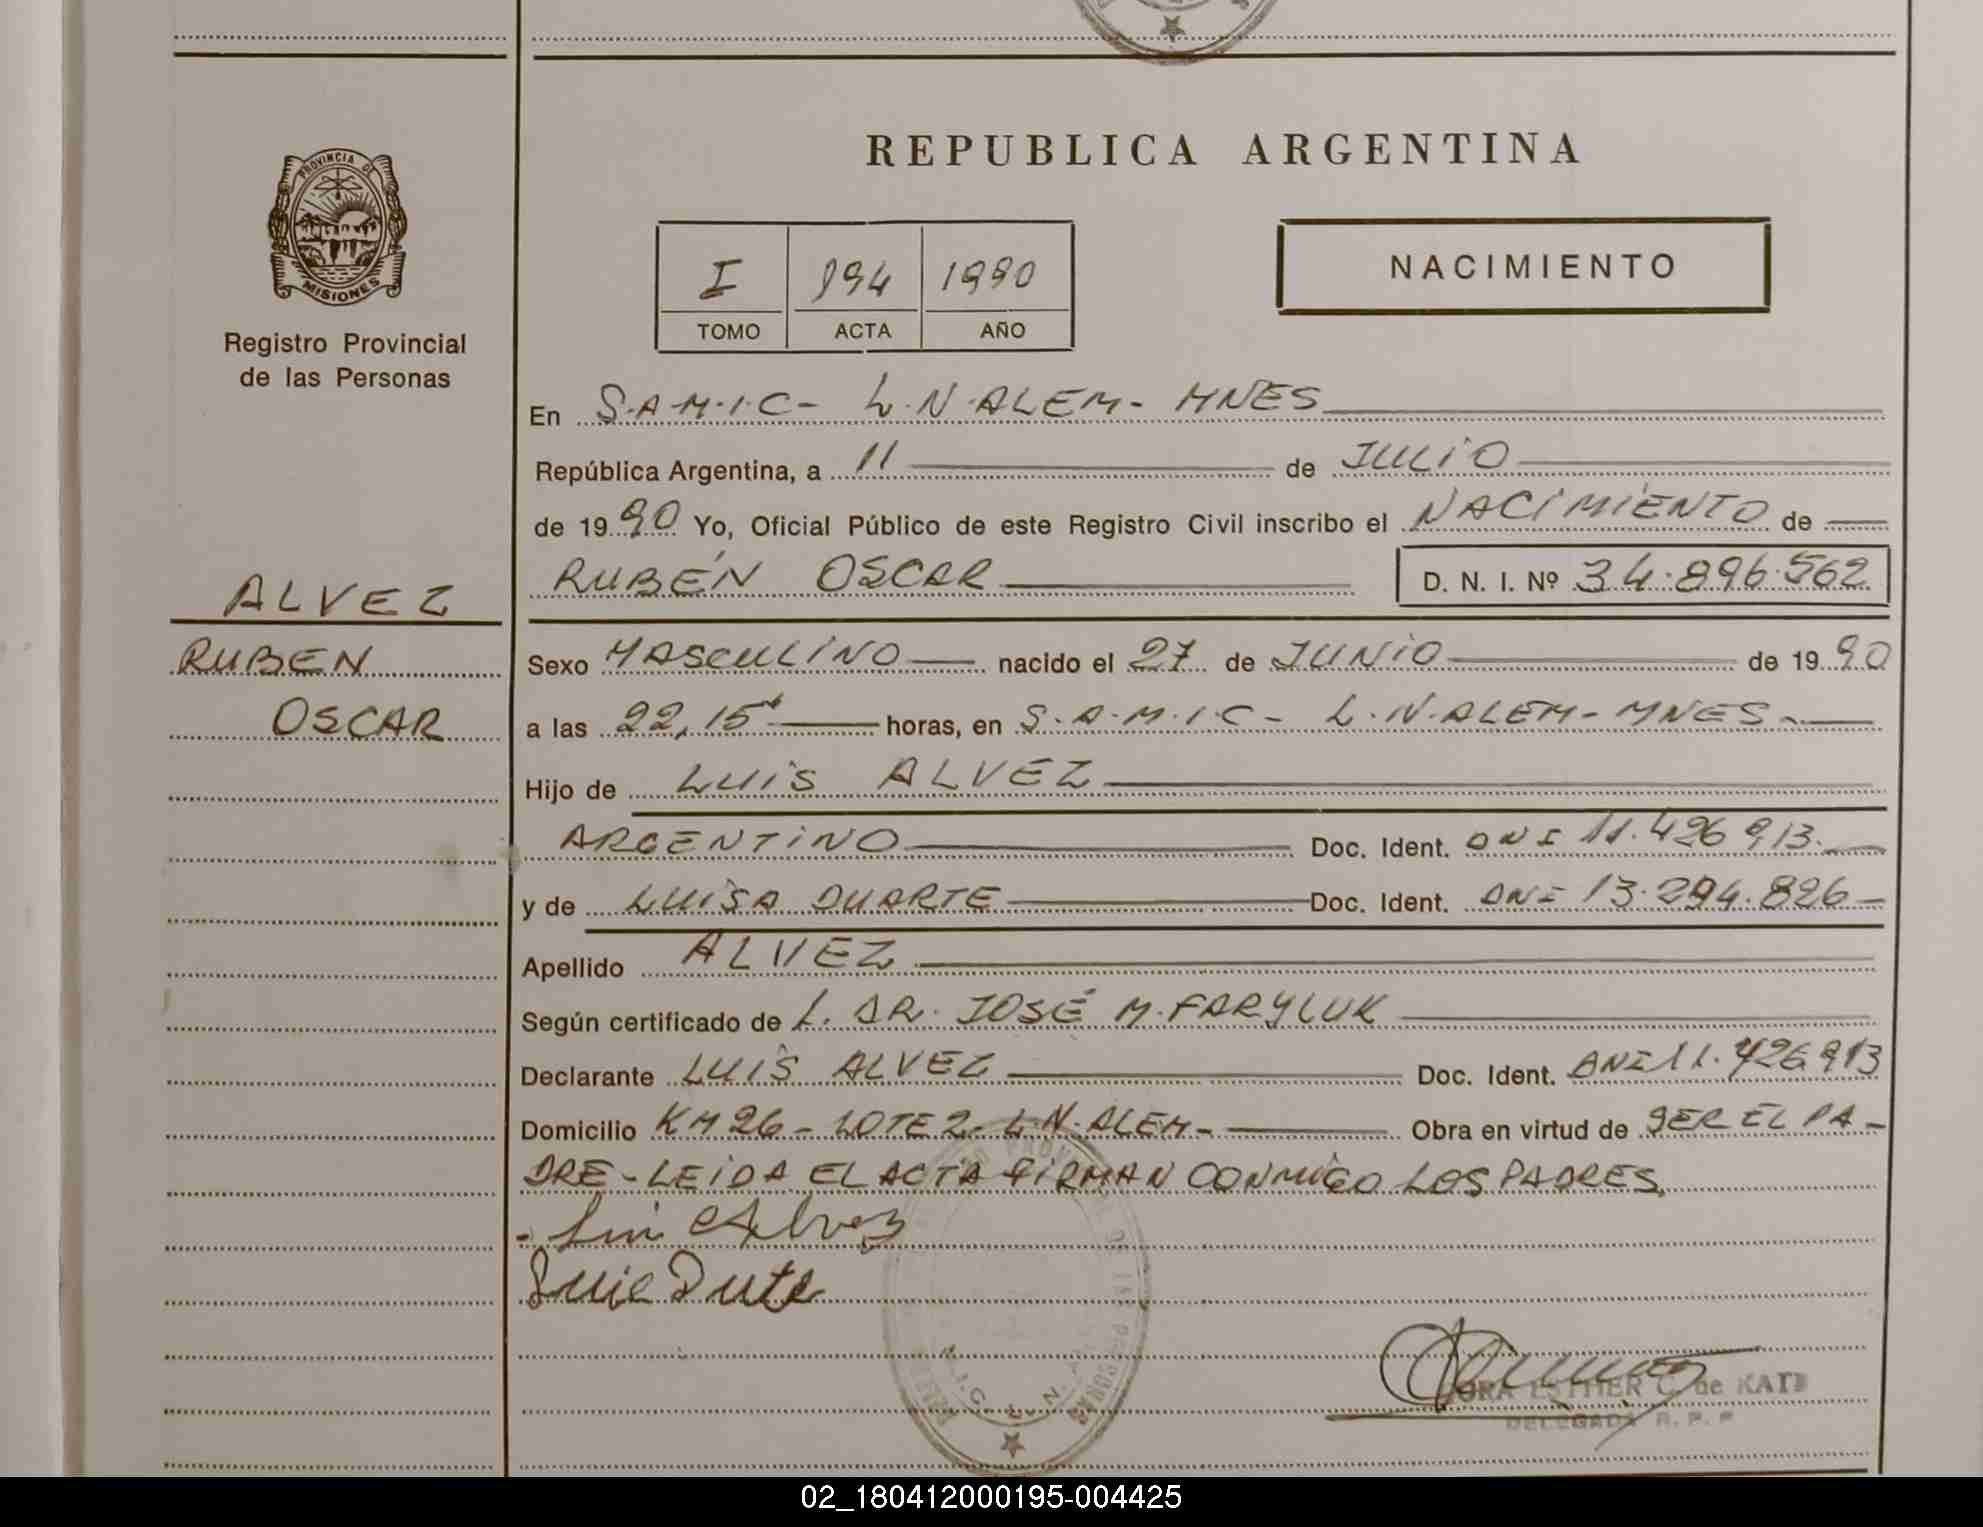 PROVINCIA DE
MISIONES
Registro Provincial
de las Personas
ALVEZ
RUBEN
OSCAR
REPUBLICA ARGENTINA
I 194 1990
TOMO ACTA AÑO
NACIMIENTO
En S.A.M.I.C- L.N.ALEM- MNES
República Argentina, a 11 de JULIO
de 1990 Yo, Oficial Público de este Registro Civil inscribo el NACIMIENTO de
RUBÉN OSCAR D. N. I. Nº 34.896.562
Sexo MASCULINO nacido el 27 de JUNIO de 1990
a las 22,15 horas, en S.A.M.I.C- L.N.ALEM- MNES-
Hijo de LUIS ALVEZ
ARGENTINO Doc. Ident. DNI 11.426.913.
y de LUISA DUARTE Doc. Ident. DNI 13.294.826
Apellido ALVEZ
Según certificado de L. DR. JOSÉ M. FARYLUK
Declarante LUIS ALVEZ Doc. Ident. DNI 11.426.913
Domicilio KM 26 - LOTE 2- L.N.ALEM- Obra en virtud de SER EL PA-
DRE - LEIDA EL ACTA FIRMAN CONMIGO LOS PADRES.
Luis Alvez
ESTHER C. de KATZ
DELEGADA R. P. P
02_180412000195-004425